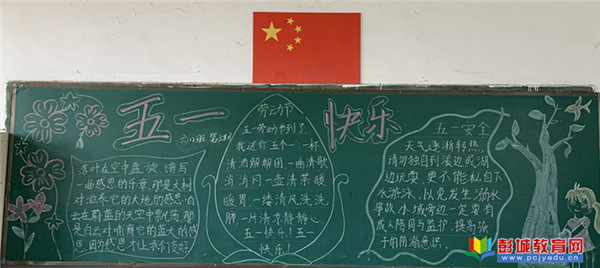 五一
快乐
六(1)班
落叶在空中盘旋 谱写
一曲感恩的乐章 那是大树
对滋养它的大地的感恩 白
云在蔚蓝的天空中飘荡 那
是白云对哺育它的蓝天的感
恩 因为感恩才让我们友好
劳动节
五一劳动节到了
我送你五个一 一杯
清酒解解困 一曲清歌
消消闷 一壶清茶暖
暖胃 一缕清风洗洗
脾 一片清凉静静心
五一快乐!五一
快乐!
五一安全
天气逐渐转热,
请勿独自到溪边或湖
边玩耍 更不能私自下
水游泳,以免发生溺水
事故 水域旁边一定要有
成人陪同与监护,提高孩
子们防溺意识。
彭城教育网
www.pcjyedu.cn